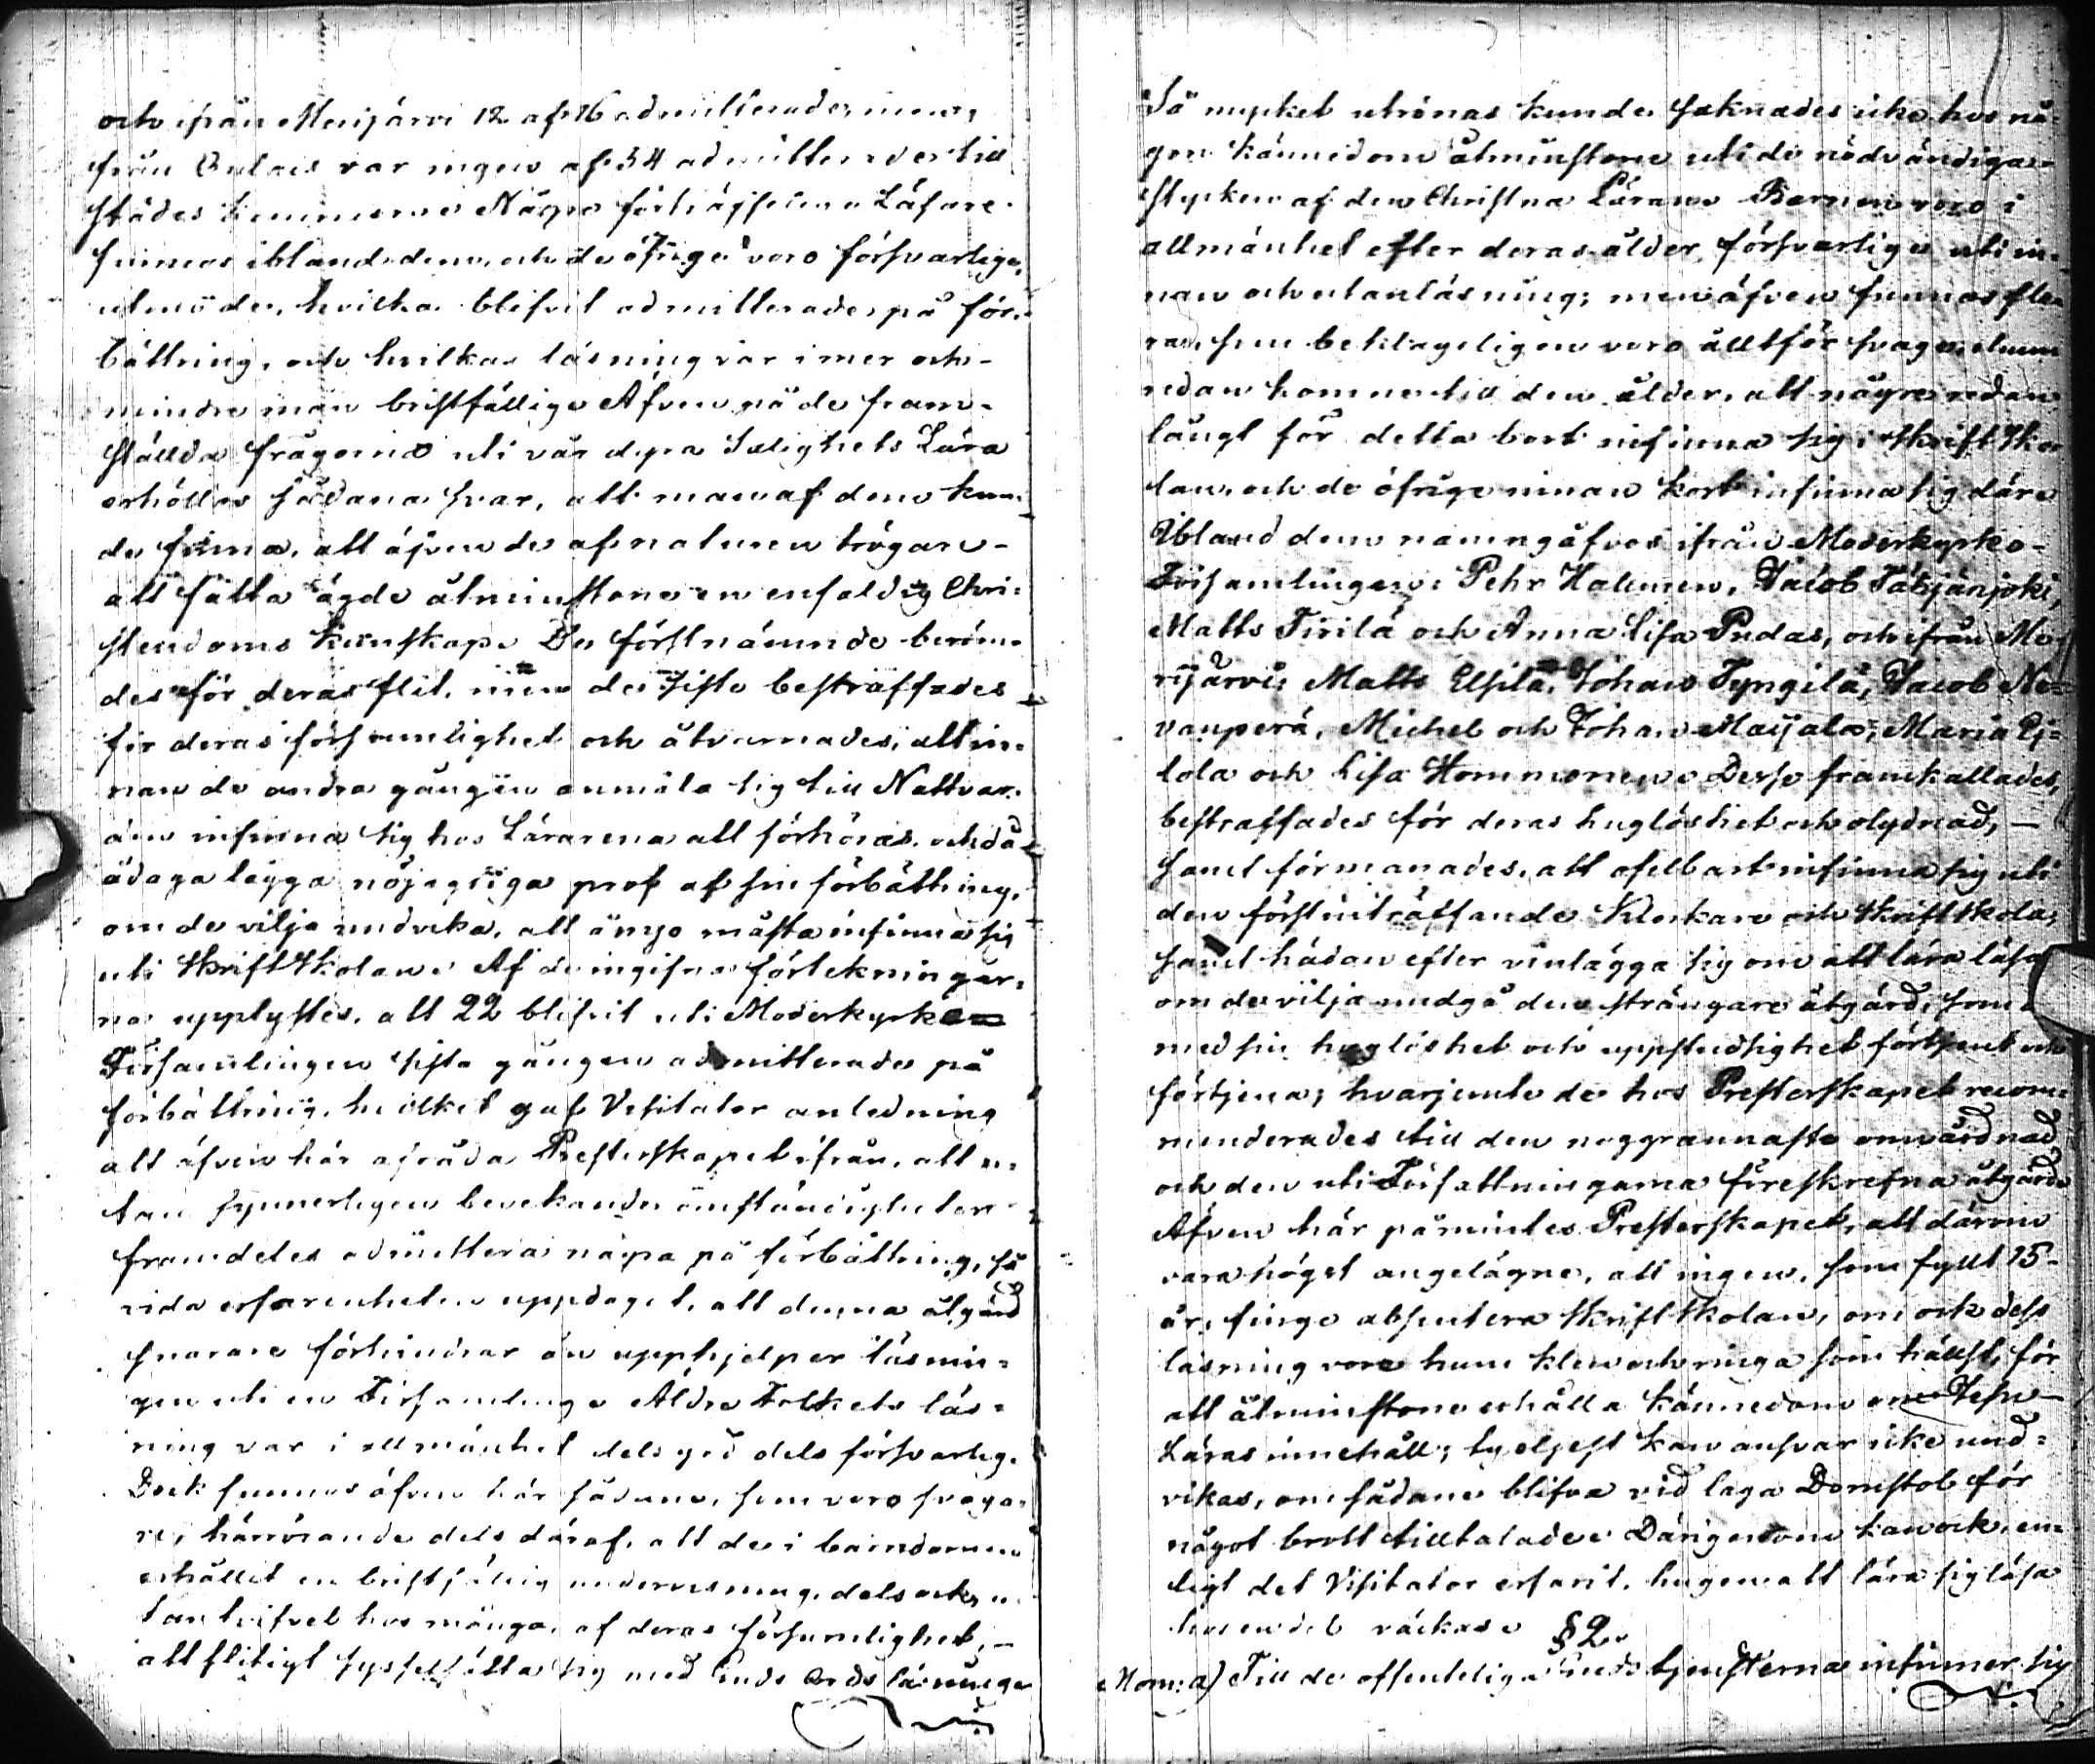 och ifrån Merijärvi 12 af 16 admitterade; men,
från Oulais var ingen af 54 admitterade till
städes kommerne Några förträffeliga Läsare
funnos ibland dem, och de öfrige voro försvarlige,
de, hvilka blifvit admitterade på för-
bättring, och hvilkas läsning var i mer och
mindre mån bristfällige Äfven på de fram-
ställda frågorna uti vår dyra Salighets Lära
erhöllos sådana svar, att man af dem kun-
de finna, att äfven de af naturen trögare
att fatta ägde åtminstone en enfaldig Chri-
stendoms kunskap. De förstnämnde beröm-
des för deras flit, men de siste bestraffades
för deras försumlighet och åtvarnades, att in-
nan de andra gången anmäla sig till Nattvar-
den infinna sig hos Lärarena att förhöras, och då
ådagalägga nöjagtiga prof af sin förbättring,
om de vilja undvika, att ånyo måsta infinna sig
uti Skriftskolan. Af de ingifna förtekningar-
na upplystes, att 22 blifvit uti Moderkyrko
Församlingen sista gången admitterade på
förbättring, hvilket gaf Visitator anledning
att äfven här afråda Presterskapet ifrån, att u-
tan synnerligen bevekande omständigheter
framdeles admittera några på förbättring, så
vida erfarenheten uppdagat, att denna åtgärd
snarare förhindrar än upphjelper läsnin-
gen uti en Församling. Äldre Folkets läs-
ning var i allmänhet dels god dels försvarlig.
Dock funnos äfven här sådane, som voro svaga-
re, härrörande dels däraf, att de i barndomen
erhållit en bristfällig undervisning, dels ock u-
tan tvifvel hos många, af deras försumlighet,
att flitigt sysselsätta sig med Guds Ords läsning
Så mycket utrönas kunde, saknades icke hos nå-
gon kännedom åtminstone uti de nödvändigas-
te stycken af den Christna Läran. Barnen voro i
allmänhet efter deras ålder försvarlige uti in-
nan och utanläsning; men äfven funnos fle-
ra, som beklageligen voro alltför svage, ehuru
redan komne till den ålder, att några redan
långt för detta bort infinna sig i skriftsko-
lan, och de öfrige innan kort infinna sig där.
Ibland dem namngåfvos ifrån Moderkyrko-
Församlingen: Pehr Halunen, Jacob Täkjänjoki,
Matts Tirilä och Anna Lisa Pudas, och ifrån Me-
rijärvi: Matts Elsilä, Johan Tyngilä, Jacob Ne-
vanperä, Michel och Johan Maijala, Maria Ej-
lola och Lisa Hommonen. Desse framkallades,
bestraffades för deras huglöshet och olydnad,
samt förmanades, att ofelbart infinna sig uti
den först inträffande Klockare och Skriftskola;
samt hädanefter vinlägga sig om att lära läsa
om de vilja undgå den strängare åtgärd, som
med sin huglöshet och uppstudsighet förtjent och
förtjena; hvarjemte de hos Presterskapet recom-
menderades till den noggrannaste omvårdnad
och den uti Författningarna föreskrefna åtgärd
Äfven här påmintes Presterskapet, att därom
vara högst angelägne, att ingen, som fyllt 15
år, finge absentera Skriftskolan, om ock dess
läsning vore hum klen och ringa som hälst, för
att åtminstone erhålla kännedom om Jesu
Läras innehåll; ty eljest kan ansvar icke und-
vikas, om sådane blifva vid laga Domstol för
något brott tilltalade. Därigenom kan ock, en-
ligt det Visitator erfarit, hugen att lära sig läsa
hos en del väckas.
§ 2.
Mom: a) Till de offentliga Gudstjensterna infinner sig